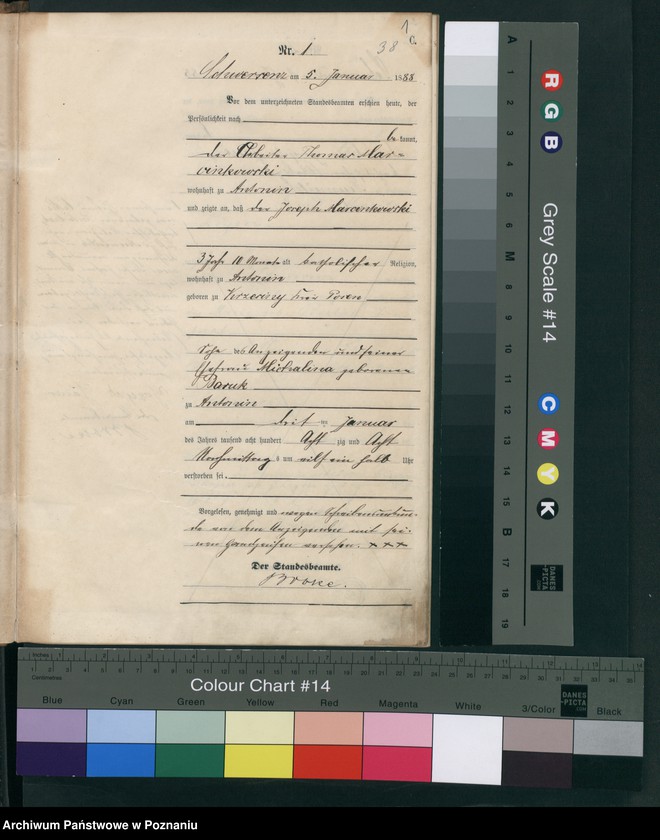 1
38
C.
Nr. 1
Schwersenz am 5. Januar 1888
Vor dem unterzeichneten Standesbeamten erschien heute, der
Persönlichkeit nach
be kannt,
der Arbeiter Thomas Mar=
cinkowski
wohnhaft zu Antonin
und zeigte an, daß der Joseph Marcinkowski
3 Jahr 10 Monate alt katholischer Religion,
wohnhaft zu Antonin
geboren zu Kreis Posen
Sohn des Anzeigenden und seiner
Ehefrau Michalina geborenen
Baruk
zu Antonin
am drit ten Januar
des Jahres tausend acht hundert Acht zig und Acht
Vormittags um elf ein halb Uhr
verstorben sei.
Vorgelesen, genehmigt und wegen Schreibensunkun=
de von dem Anzeigenden mit sei=
nen Handzeichen versehen. + + +
Der Standesbeamte.
A 1 2 3 4 5 6 M 8 9 10 11 12 13 14 15 B 17 18 19
R G B
Grey Scale #14
C M Y K
DANES-PICTA
Inches
Centimetres
Colour Chart #14
DANES-PICTA.COM
Blue Cyan Green Yellow Red Magenta White 3/Color Black
Archiwum Państwowe w Poznaniu